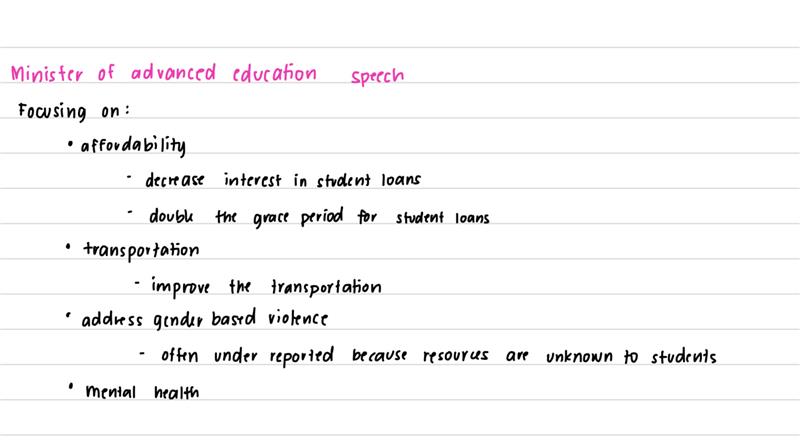 Minister of advanced education speech
Focusing on:
• affordability
- decrease interest in student loans
- double the grace period for student loans
• transportation
- improve the transportation
• address gender based violence
- often under reported because resources are unknown to students
• mental health